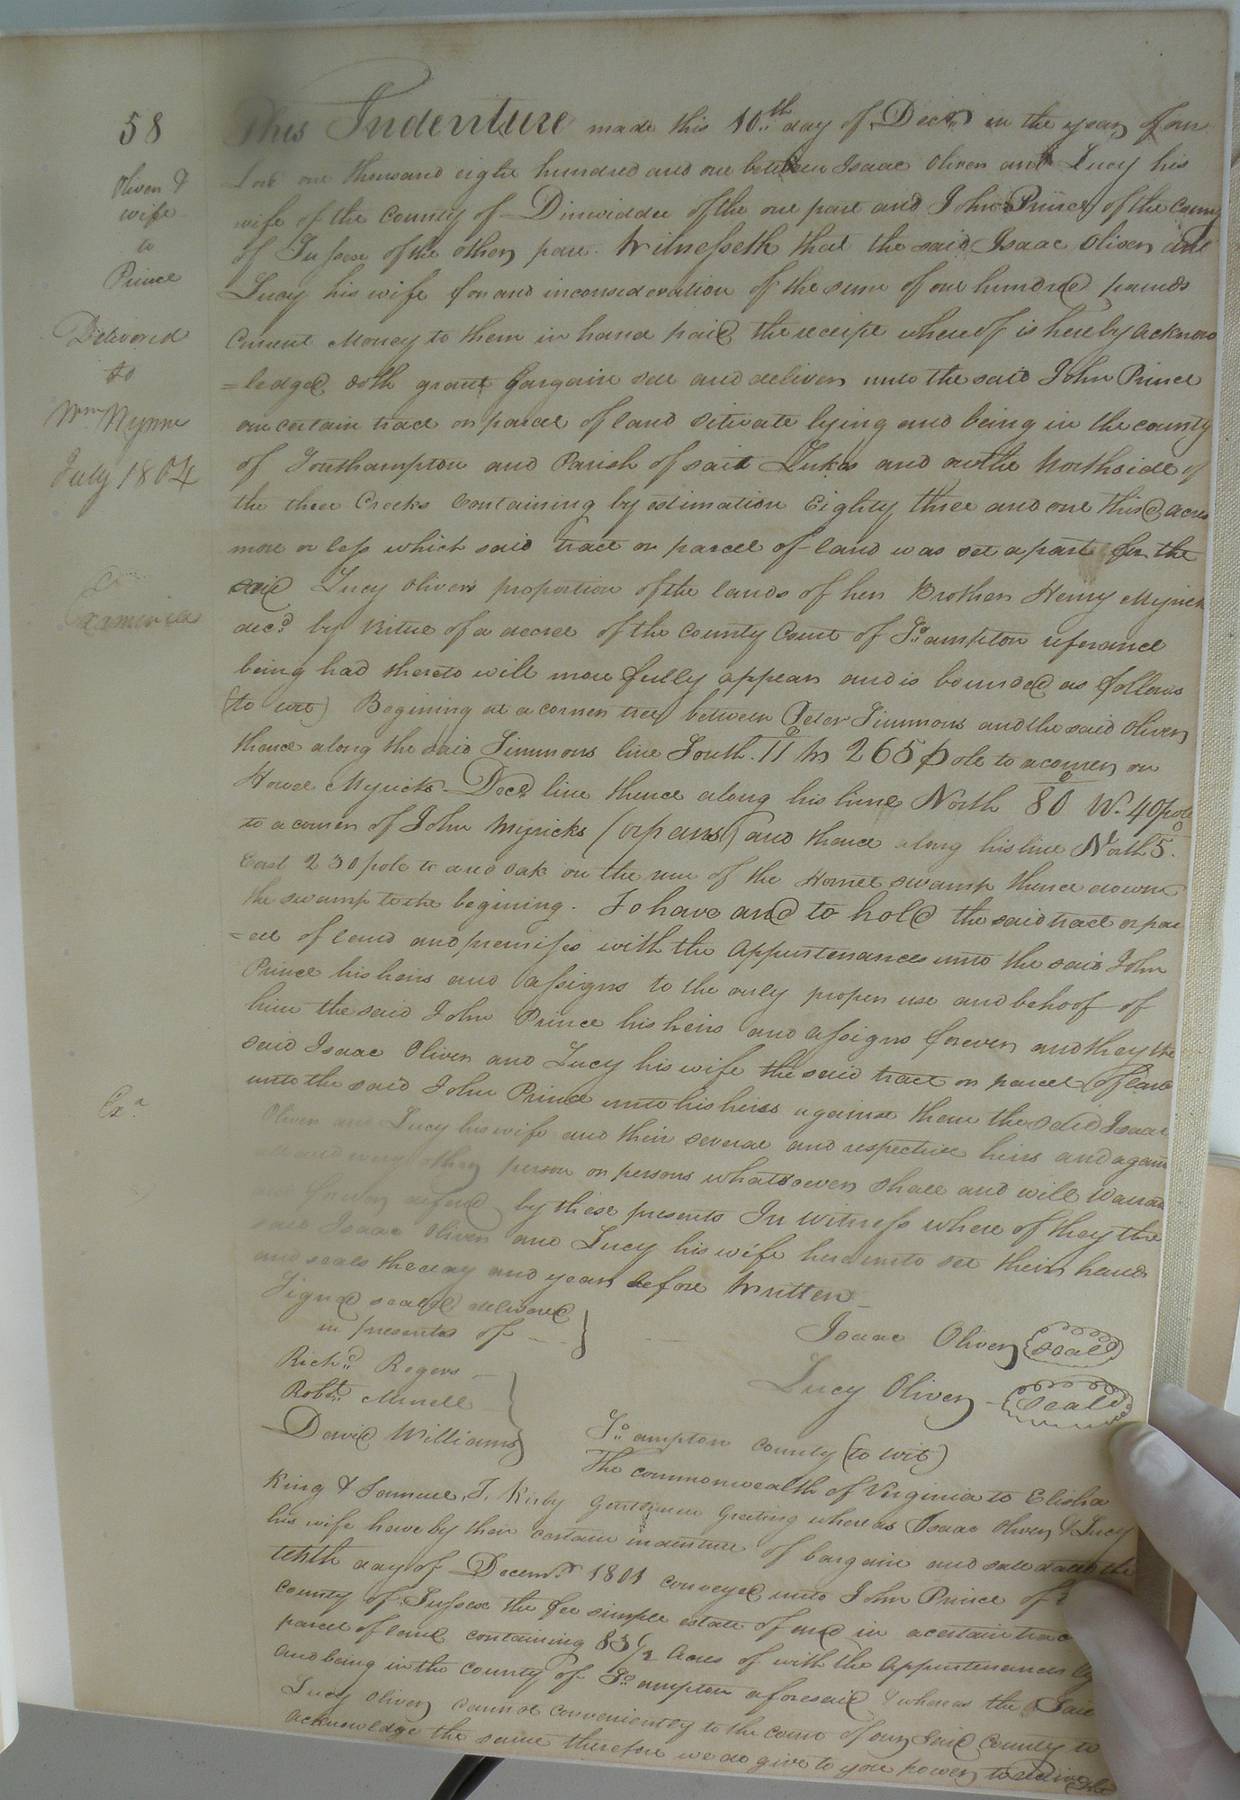 58
Oliver &
wife
to
Prince
Delivered
to
Wm Nynne
July 1804
Examined
Exa
This Indenture made this 10th day of Decr in the year of our
Lord one thousand eight hundred and one between Isaac Oliver and Lucy his
wife of the County of Dinwiddee of the one part and John Prince of the County
of Sussex of the other part. Witnesseth that the said Isaac Oliver and
Lucy his wife for and inconsideration of the sum of one hundred pounds
Current Money to them in hand paid the receipt whereof is hereby acknow
=ledged doth grant bargain sell and deliver unto the said John Prince
one certain tract or parcel of land situate lying and being in the county
of Southampton and Parish of saint Lukes and on the North side of
the three Creeks Containing by estimation Eighty three and one third acres
more or less which said tract or parcel of land was set apart for the
said Lucy Olivers proportion of the lands of her Brother Henry Myrick
decd by Virtue of a decree of the County Court of So.ampton referance
being had thereto will more fully appear and is bounded as follows
(to wit) Begining at a corner tree between Peter Simmons and the said Oliver
thence along the said Simmons line South 11° W 265 pole to a corner on
Howel Myricks Decd line thence along his line North 80° W. 40 pole
to a corner of John Myricks (orpans) and thence along his line North 5°
East 230 pole to a red oak on the run of the Hornet swamp thence down
the swamp to the begining. To have and to hold the said tract or par
=cel of land and premises with the appurtenances unto the said John
Prince his heirs and assigns to the only proper use and behoof of
him the said John Prince his heirs and assigns forever and they the
said Isaac Oliver and Lucy his wife the said tract or parcel of land
unto the said John Prince unto his heirs against them the said Isaac
Oliver and Lucy his wife and their several and respective heirs and again
all and every other person or persons whatsoever shall and will Warrant
and forever defend by these presents In Witness where of they the
said Isaac Oliver and Lucy his wife hereunto set their hand
and seals the day and year before Written
Signed seald delivered
in presents of
Isaac Oliver seal
Richd Rogers
Lucy Oliver seal
Robt Murell
David Williams
So.ampton County (to wit)
The commonwealth of Virginia to Elisha
King & Samuel T. Kirby Gentlemen Greeting whereas Isaac Oliver & Lucy
his wife have by their certain indenture of bargain and sale dated the
tenth day of Decemr 1801 conveyed unto John Prince of
county of Sussex the fee simple estate of and in a certain trac
parcel of land containing 83 1/2 Acres of with the Appurtenances
and being in the county of So.ampton aforesaid & whereas the Said
Lucy Oliver cannot conveniently to the court of our Said County to
acknowledge the same therefore we do give to you power to receive the